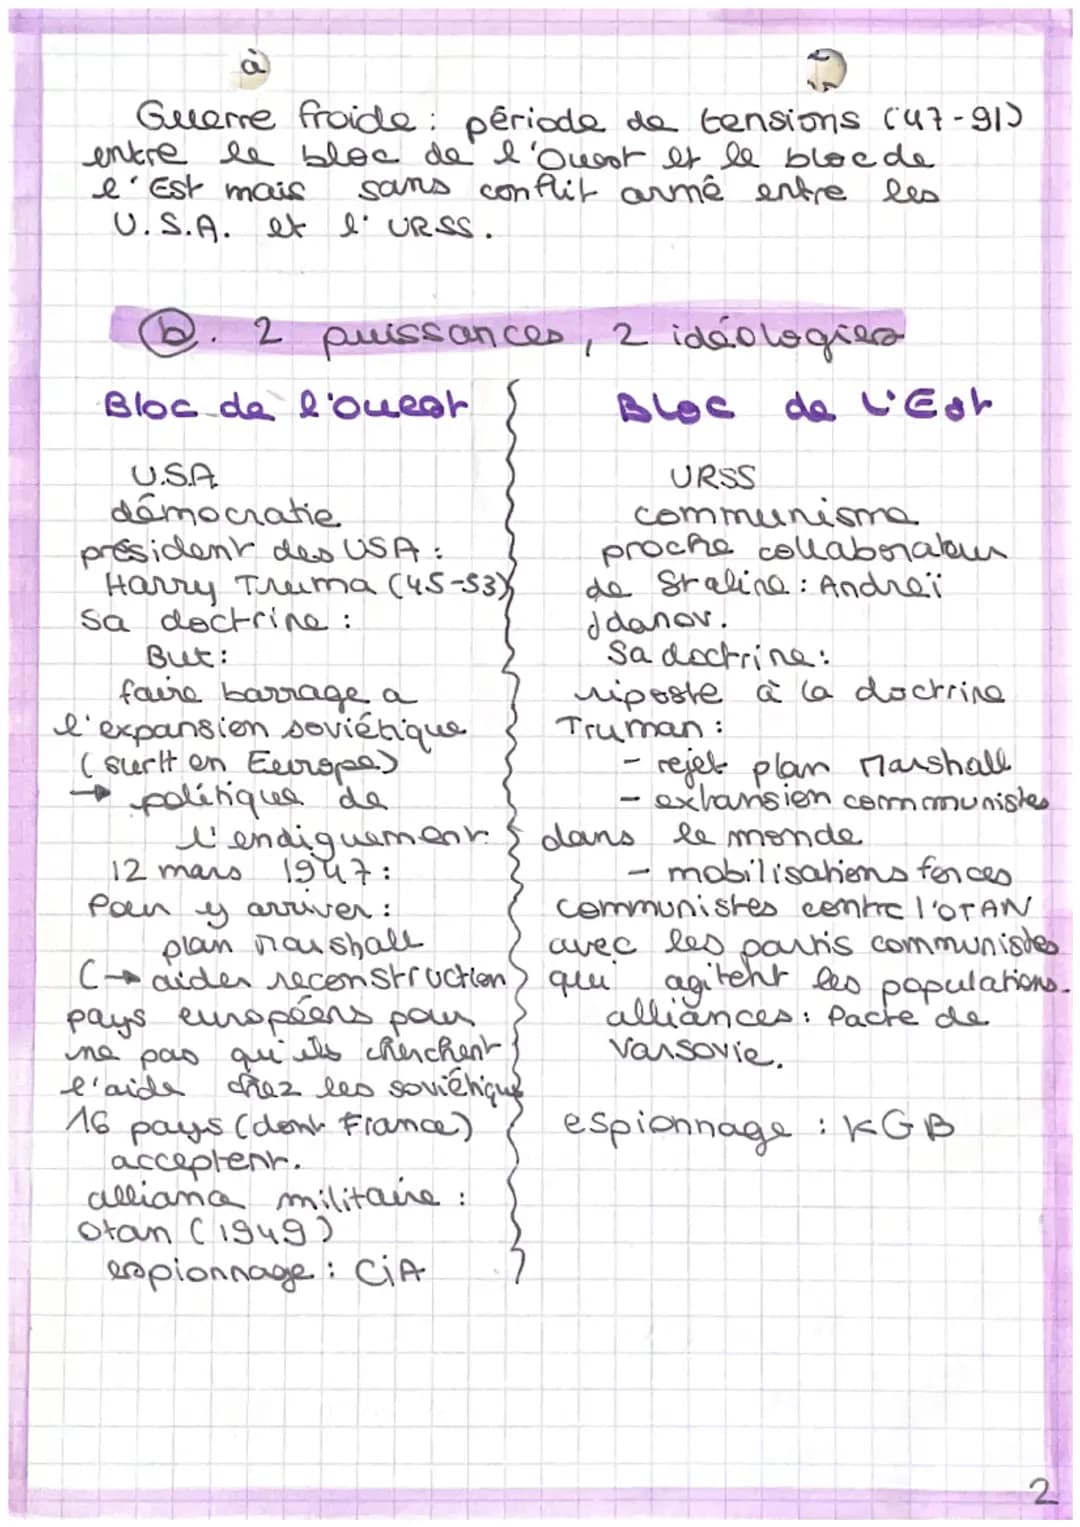 à
Guerre froide : période de tensions (47-91)
entre le bloc de l'Ouest et le bloc de
l'Est mais sans conflit armé entre les
U.S.A. et l'URSS.
b. 2 puissances, 2 idéologies
Bloc de l'ouest
U.S.A
démocratie
président des USA :
Harry Truma (45-53)
sa doctrine :
But :
faire barrage a
l'expansion soviétique
(surtt en Europe)
→ politique de
l'endiguement.
12 mars 1947 :
Pour y arriver :
plan Marshall
(→ aider reconstruction
pays européens pour
ne pas qu'ils cherchent
l'aide chez les soviétiques
16 pays (dont France)
acceptent.
alliance militaire :
Otan (1949)
espionnage : CiA
Bloc de l'Est
URSS
communisme
proche collaborateur
de Staline : Andreï
Jdanov.
Sa doctrine :
riposte à la doctrine
Truman :
- rejet plan Marshall
- exhansion communistes
dans le monde
- mobilisations forces
communistes contre l'OTAN
avec les partis communistes
qui agitent les populations.
alliances : Pacte de
Varsovie.
espionnage : KGB
2